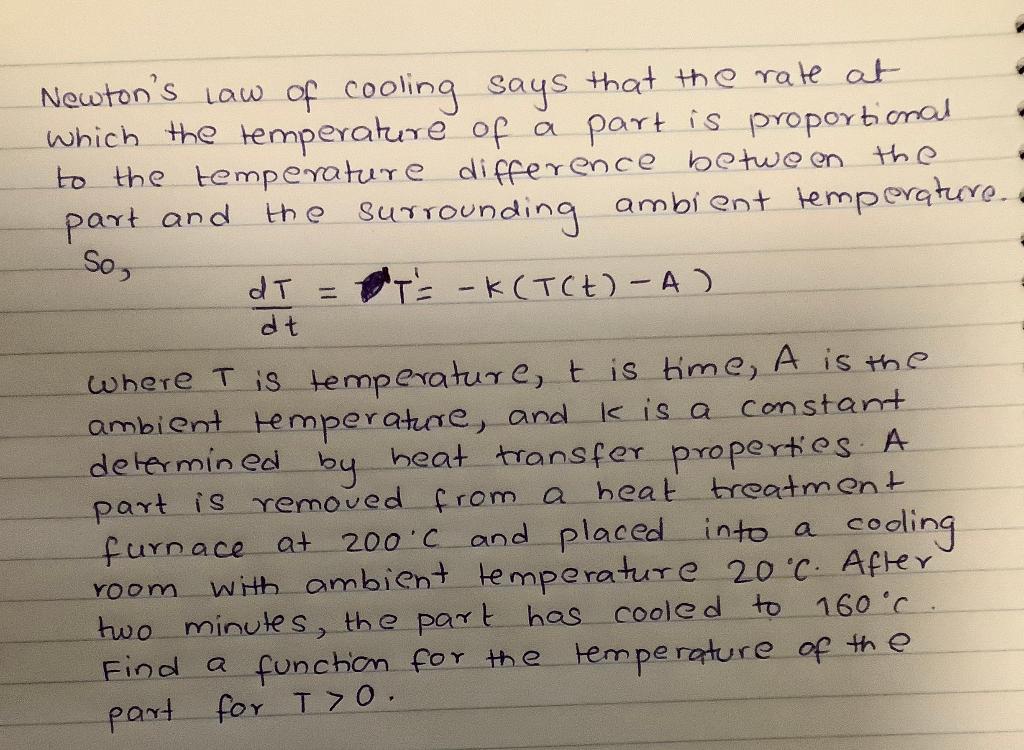 Newton's law of cooling says that the rate at
which the temperature of a part is proportional
to the temperature difference between the
part and the surrounding ambient temperature.
So,
dT/dt = T' = -k(T(t) - A)
where T is temperature, t is time, A is the
ambient temperature, and k is a constant
determined by heat transfer properties. A
part is removed from a heat treatment
furnace at 200°C and placed into a cooling
room with ambient temperature 20°C. After
two minutes, the part has cooled to 160°C.
Find a function for the temperature of the
part for T > 0.